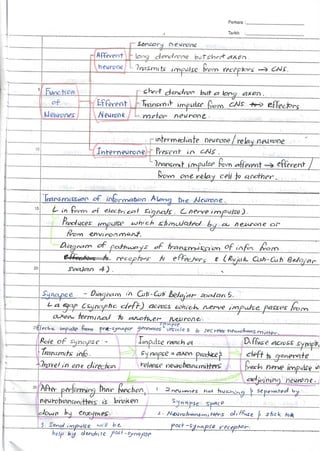 Perkara :
Tarikh :
Sensory neurone
Afferent long dendrone but short axon.
Neurone Transmits impulse from receptors → CNS.
Function short dendron but a long axon.
of Efferent Transmit impulse from CNS → effectors
Neurones Neurone motor neurone.
intermediate neurone / relay neurone
Interneurone Present in CNS.
Transmit impulse from afferent → efferent /
from one relay cell to another.
Transmission of information Along the Neurone.
↳ in form of electrical signals (nerve impulse).
Produces impulse which stimulated by a neurone or
from environment.
Diagram of pathways of transmission of infon from
receptors to effectors (Rujuk Cuti-Cuti Belajar
Soalan 4).
Synapse - Diagram in Cuti-Cuti belajar soalan 5.
↳ a gap (synaptic cleft) across which nerve impulse passes from
axon terminal to another neurone
Electric impulse from pre-synapse vesicles to secrete neurotransmitter.
Role of synapse - Impulse reach at Diffuse across synapse
Transmits info. synapse → axon cleft to generate
Travel in one direction release neurotransmitters fresh nerve impulse in
adjoining neurone.
After performing their function, 2 neurones not touching & separated by
neurotransmitters is broken synapse space
down by enzymes. 2. Neurotransmitters diffuse & stick to
3. Send impulse will be post-synapse receptor.
help by dendrite post-synapse